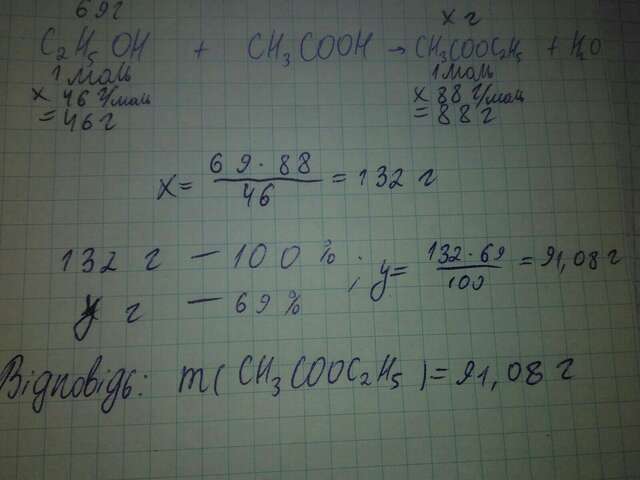 69г x г
C₂H₅OH + CH₃COOH → CH₃COOC₂H₅ + H₂O
1 моль 1 моль
x 46 г/моль x 88 г/моль
= 46 г = 88 г
x = 69 · 88 / 46 = 132 г
132 г — 100 % ; y = 132 · 69 / 100 = 91,08 г
y г — 69 %
Відповідь: m(CH₃COOC₂H₅) = 91,08 г